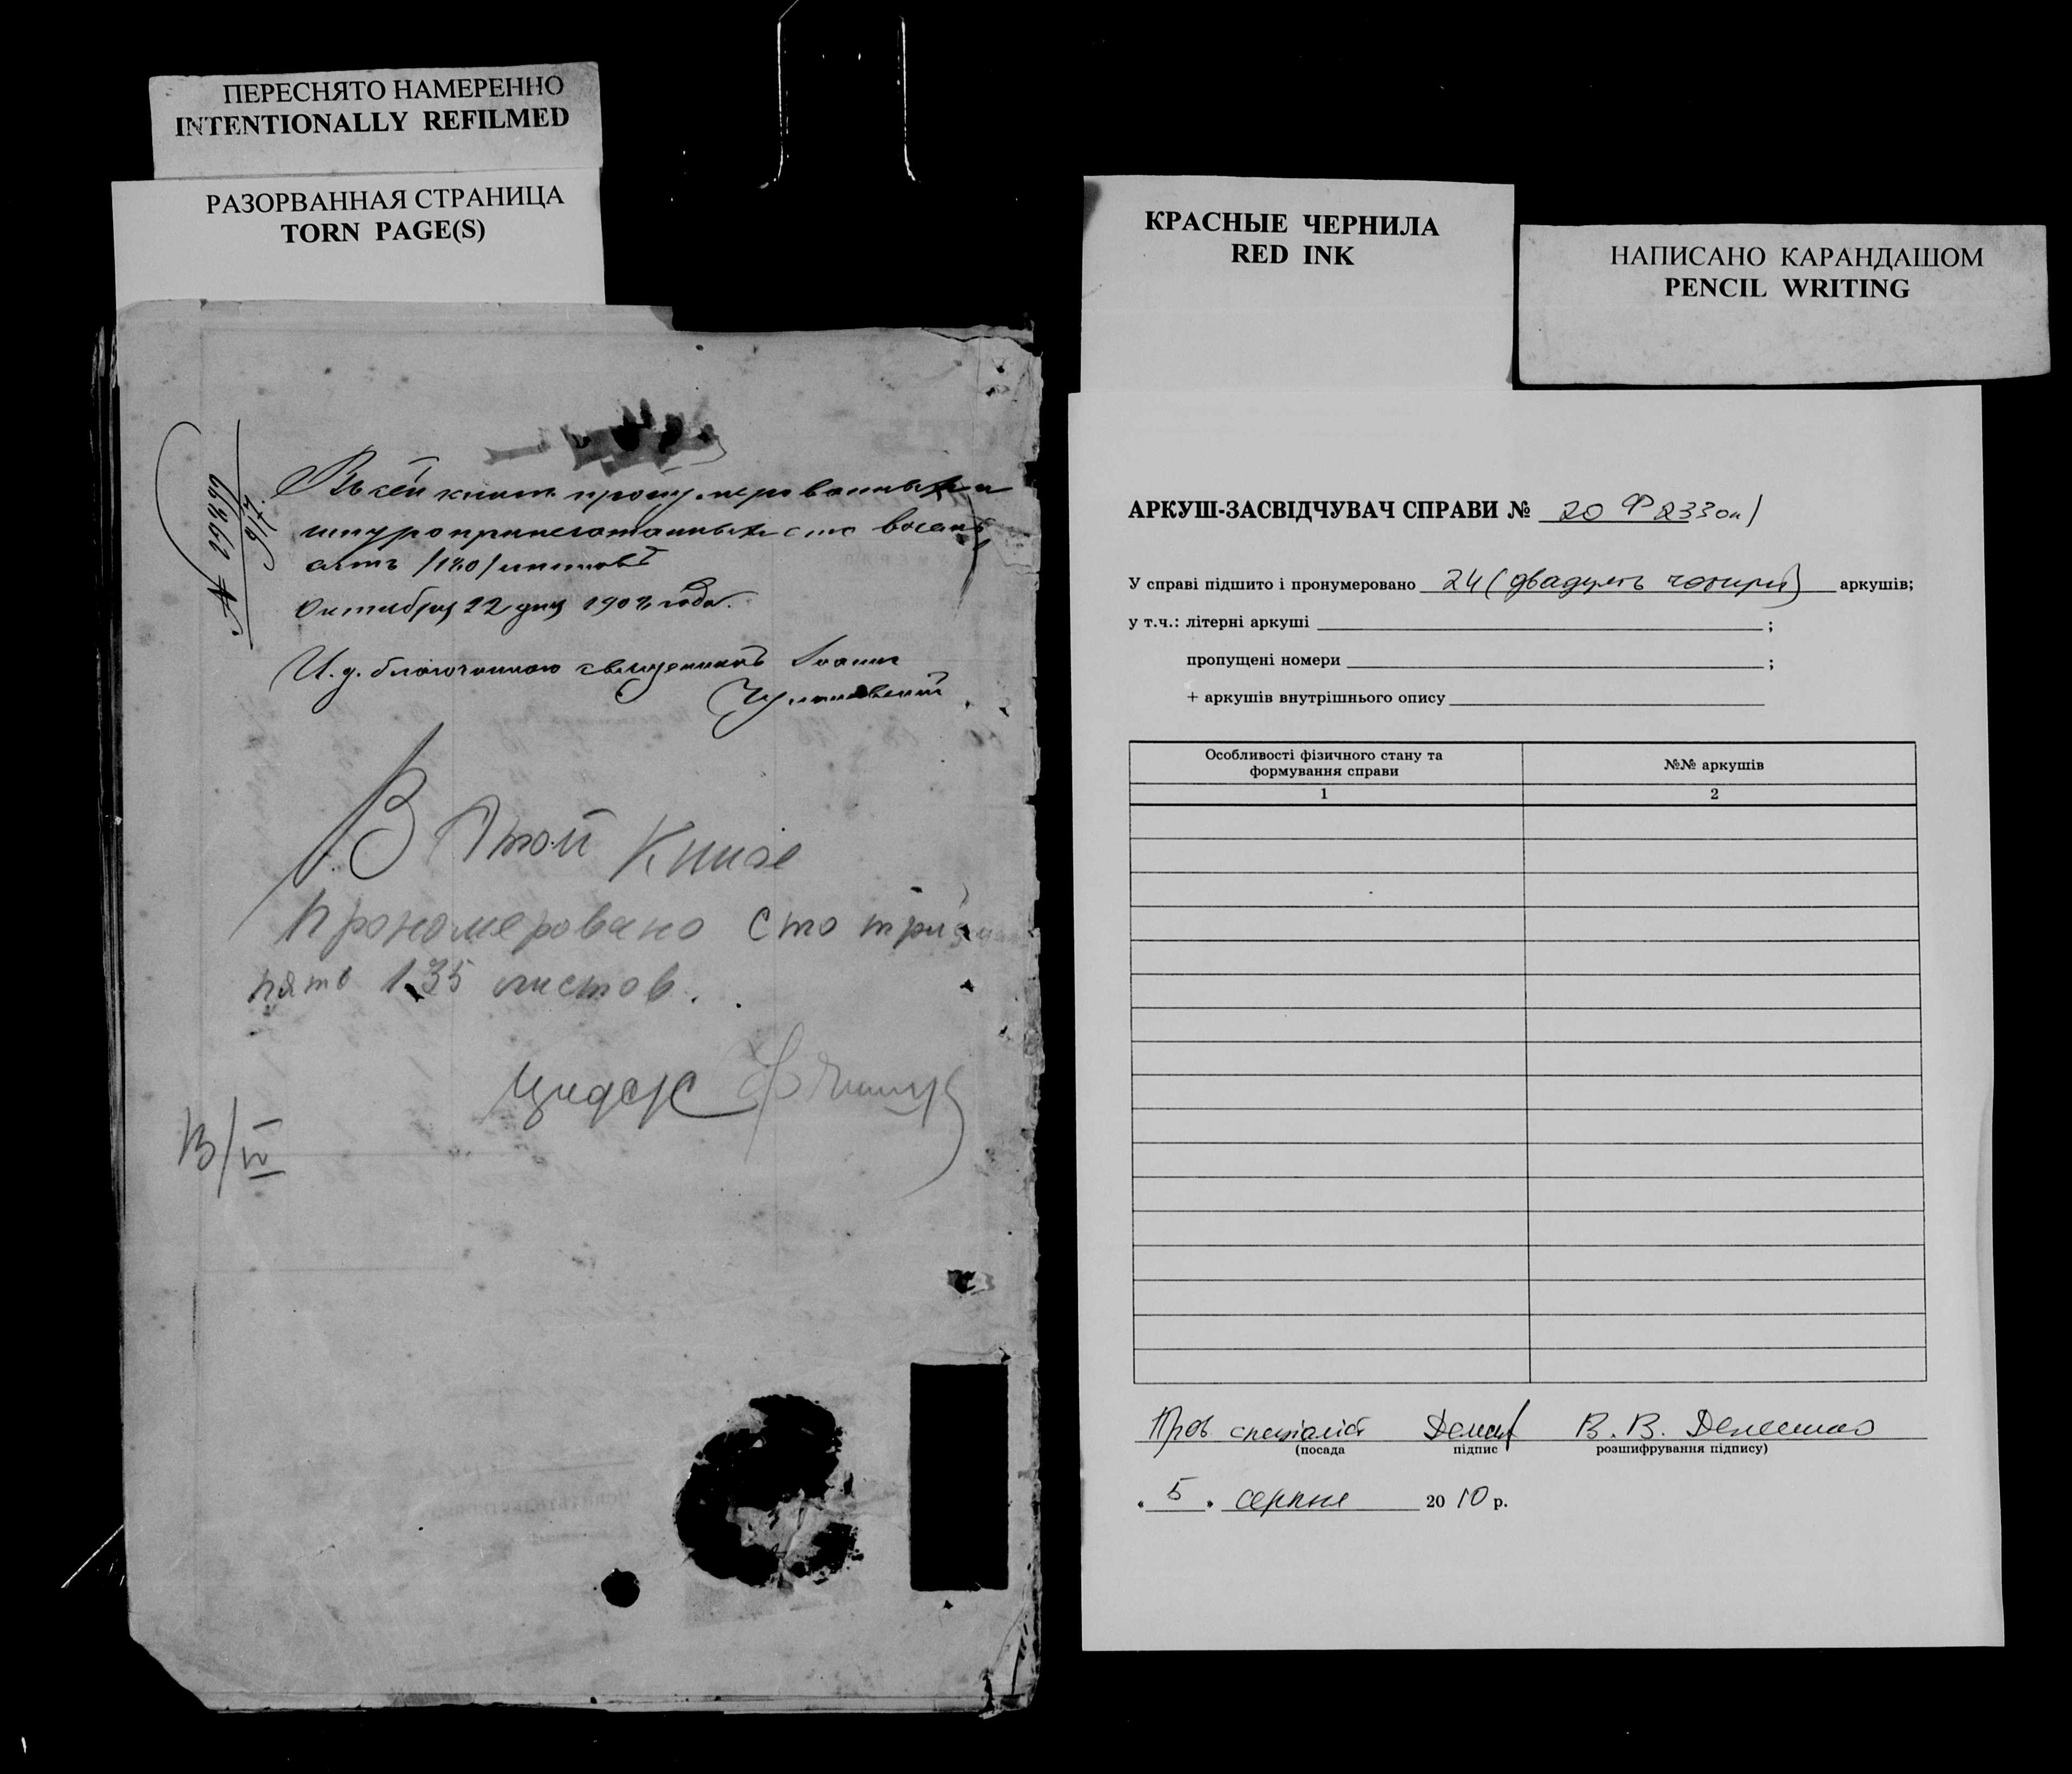 ПЕРЕСНЯТО НАМЕРЕННО
INTENTIONALLY REFILMED
РАЗОРВАННАЯ СТРАНИЦА
TORN PAGE(S)
Въ сей книгѣ пронумерованныхъ и
шнуроприпечатанныхъ сто восемь
/180/ листовъ
Октября 22 дня 1907 года.
И. д. благочиннаго священникъ Іоаннъ
В этой книге
прономеровано сто тридцать
пять 135 листов.
В/IV
КРАСНЫЕ ЧЕРНИЛА
RED INK
НАПИСАНО КАРАНДАШОМ
PENCIL WRITING
АРКУШ-ЗАСВІДЧУВАЧ СПРАВИ № 20 Ф 233 оп 1
У справі підшито і пронумеровано 24 (двадцять чотири) аркушів;
у т.ч.: літерні аркуші ;
пропущені номери ;
+ аркушів внутрішнього опису
Особливості фізичного стану та
формування справи
№№ аркушів
1 2
Пров спеціаліст В. В.
(посада підпис розшифрування підпису)
5 серпня 2010 р.